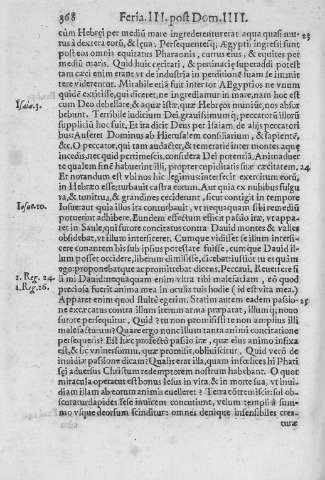 368 Feria. III. post Dom. IIII.
cùm Hebręi per mediũ mare ingrederenturerat aqua quasi mu- 23
rus à dextera eorũ, & lęua. Persequentesq́; Ægyptij ingressi sunt
post eos omnis equitatus Pharaonis, currus eius, & equites per
mediũ maris. Quid huic cęcitati, & pertinacię superaddi potest
tam cæci enim erant vt de industria in perditionẽ suam se immit-
tere viderentur. Mirabile etiã fuit inter tot Ægyptios ne vnum
quidẽ extitisse, qui diceret, ne ingrediamur in mare, nam hoc est
Isaiæ.3. cum Deo debellare, & aquæ istæ, quæ Hebręos muniũt, nos absor
bebunt. Terribile iudicium Dei, grauissimumq́; peccatorũ illorũ
supplíciũ hoc fuit, Et ita dicit Deus per Isaiam, de alijs peccatori
bus: Auferet Dominus ab Hierusalem consiliarium, & sapientẽ,
&c. O peccator, qui tam audaster, & temerariè inter montes aquę
incedis, nec quid pertimescis, considera Dei potentiã, Animaduer
te qualem finẽ habuerint illi, propter cupiditatis suæ cæcitatem. 24
Et notandum est vbi nos hic legimus interfecit exercitum eorũ,
in Hebræo esse: turbauit castra eorum. Aut quia ex nubibus fulgu
ra, & tonitrua, & grandines ceciderunt, sicut contigit in tempore
Iosue.10. Iosuæ: aut quia illos ita conturbauit, vt neque quam sibi remediũ
potuerint adhibere. Eundem effectum efficit passio iræ, vt appa-
ret in Saule, qui furore concitatus contra Dauid montes & valles
obsidebat, vt illum interficeret. Cumque vidisset se illum intersi-
cere conantem his sub ipsius potestate fuisse, cumque Dauid il-
lum posset occidere, liberum dimississe, dicebat: iustior tu es quàm
1. Reg. 24. ego: proponebatque ac promittebat dicens, Peccaui, Reuertere fi
1. Reg. 26. li mi Dauid: nequaquam enim vltra tibi malefaciam, eò quod
preciosa fuerit anima mea in oculis tuis hodie (id est vita mea)
Apparet enim quod stultè egerim. Statim autem eadem passio- 25
ne excæcatus contra illum iterum arma præparat, illumq́; nouo
furore persequitur. Quid? tu non promisisti te non amplius illi
malefacturum? Quare ergo nunc illum tanta animi concitatione
persequeris? Est hæc profectò passio iræ, quæ eius animo infixa
est, & sic vniuersomu, quæ promisit, obliuiscitur. Quid verò de
inuidiæ passione dicam? Qualis erat illa, quam infœlices hi Phari
sęi aduersus Christum redemptorem nostrum habebant. O quot
miracula operatus est bonus Iesus in vita, & in morte sua, vt inui-
diam illam ab eorum animis euelleret? Terra cõtremiscit: sol ob-
scuratur: lapides sese inuicem concutiunt, velum templi à sum-
mo vsque deorsum scinditur: omnes denique insensibiles crea-
turæ